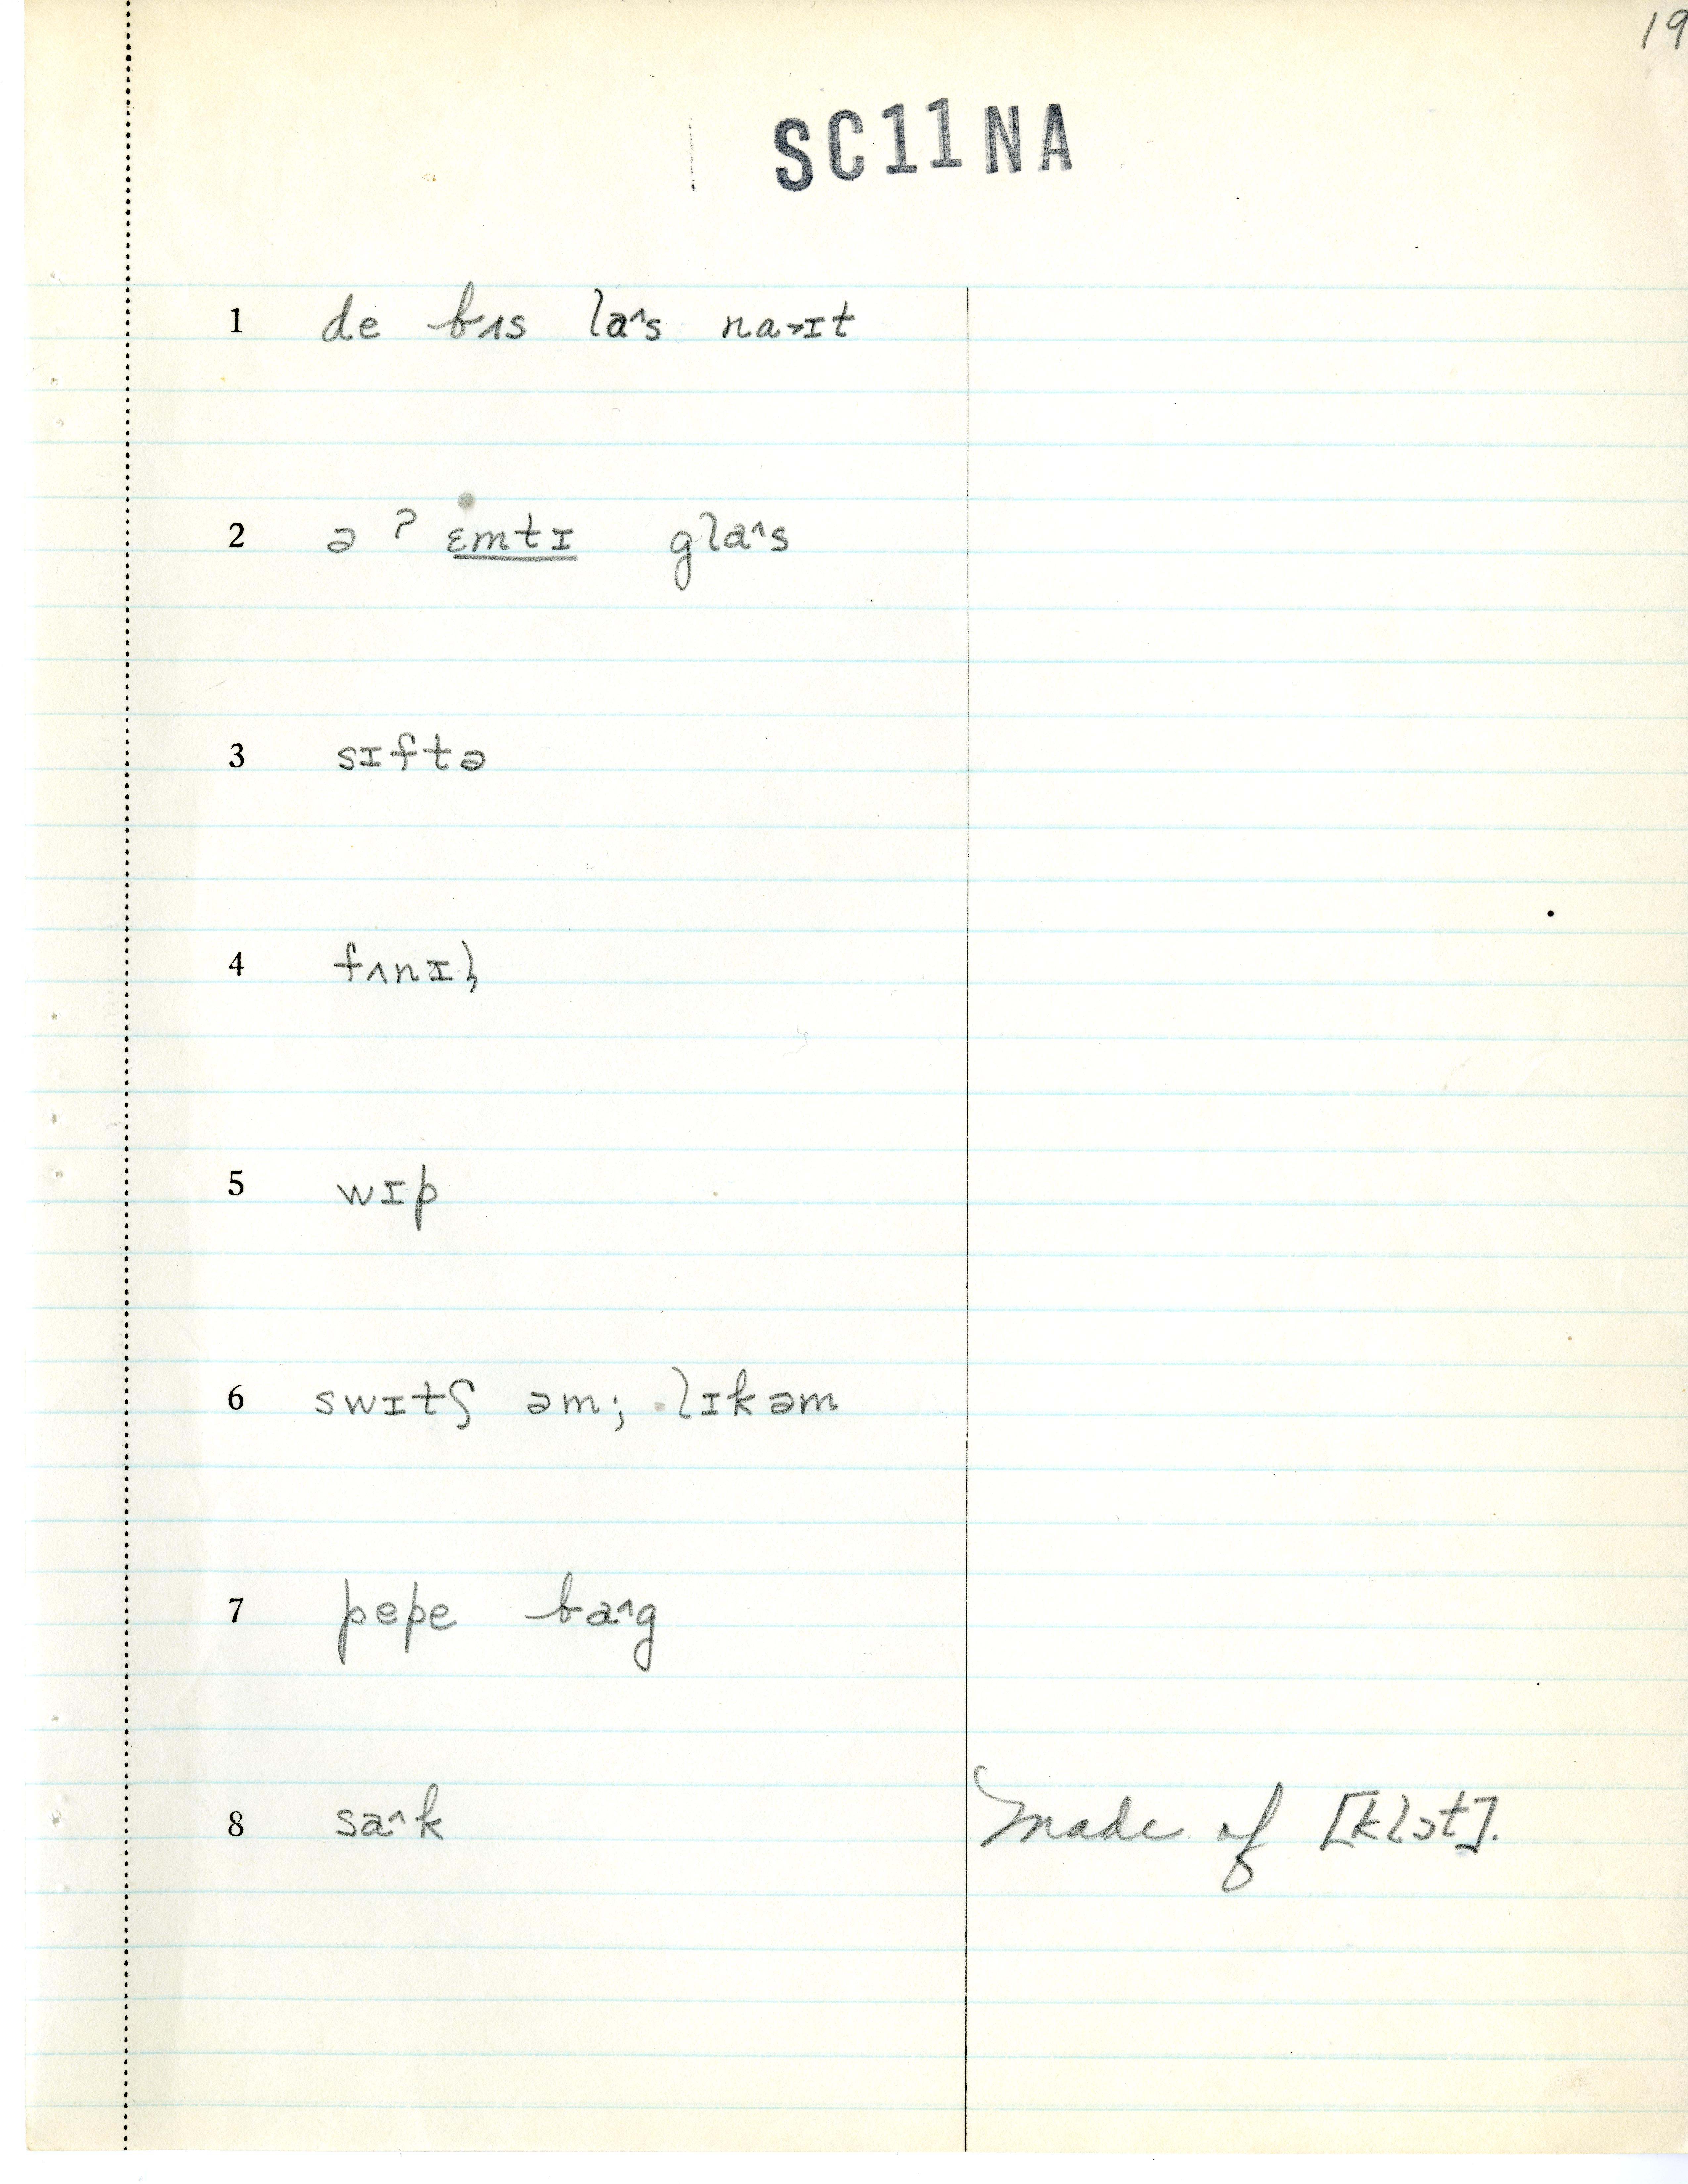 19
SC11NA
1 de bʌs laˆs na˃ɪt
2 ə ʔ ɛmtɪ glaˆs
3 sɪftə
4 fʌnɪl̩
5 wɪp
6 swɪtʃ əm; lɪkəm
7 pepe baˆg
8 saˆk Made of [klɔt].